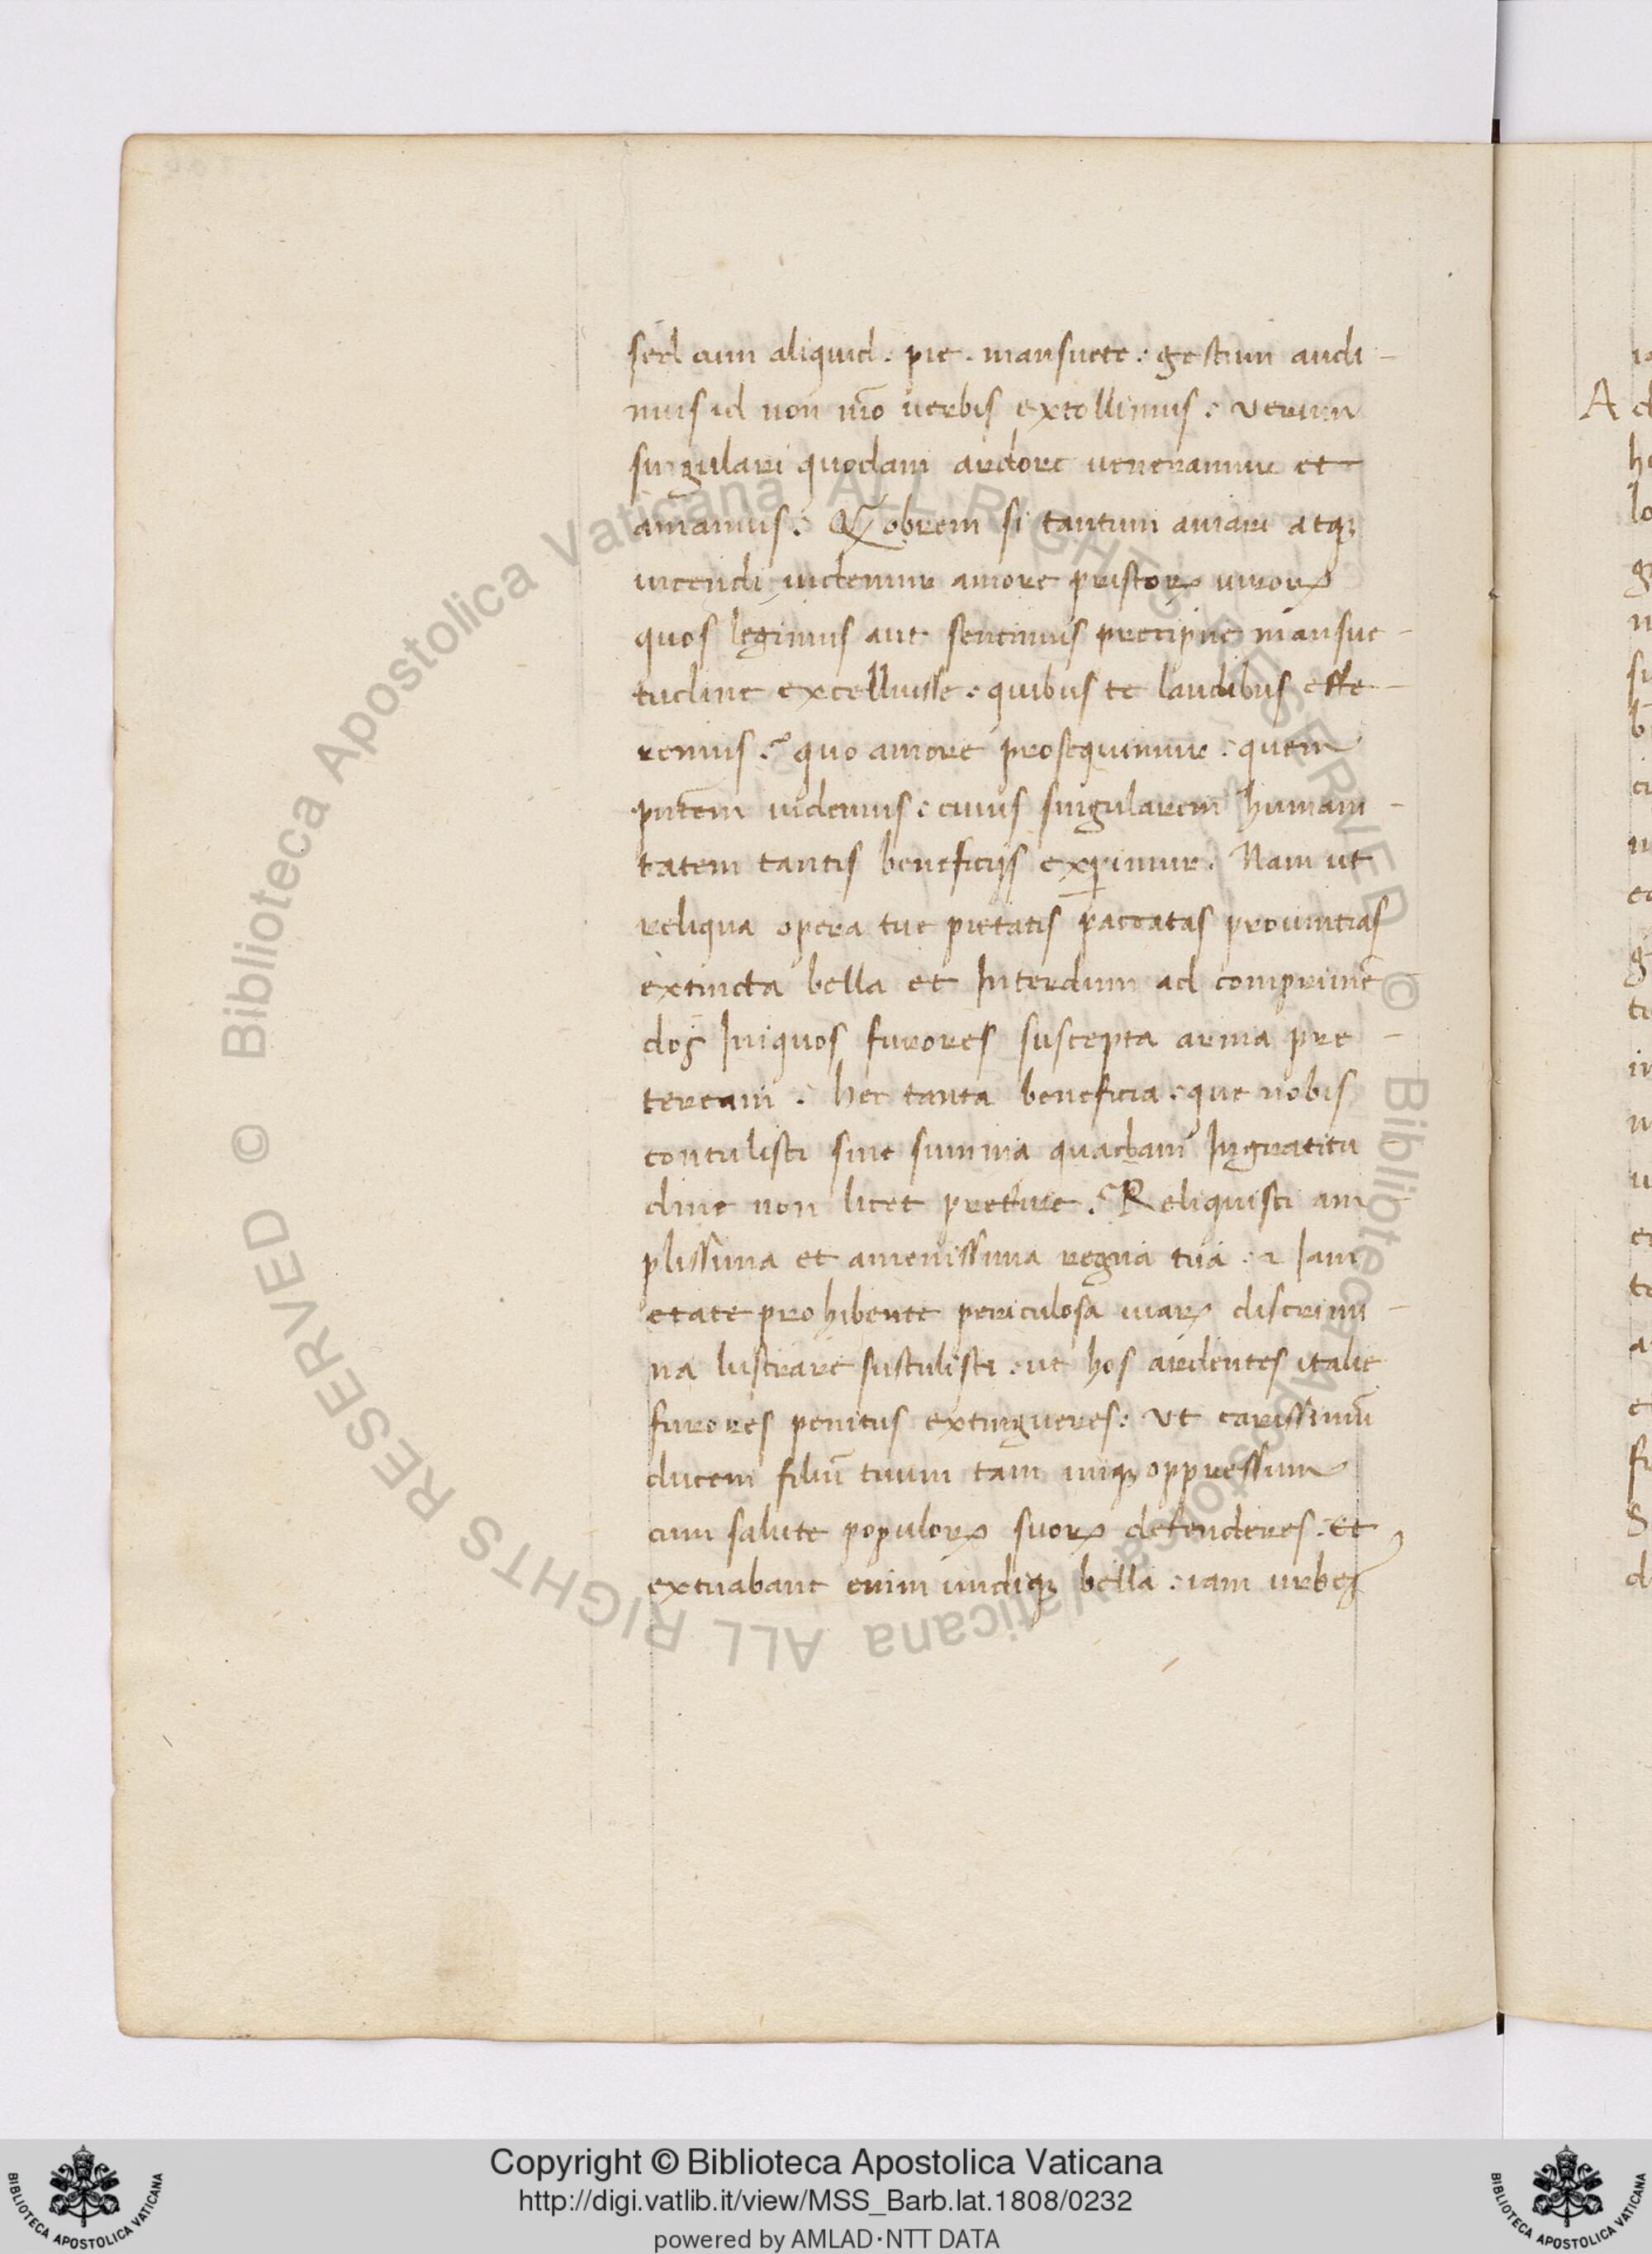 sed cum aliquid. pie. mansuete: gestum audi-
mus id non mō uerbis extollimus: verum
singulari quodam ardore ueneramur et
amamus: Qobrem si tantum amari atqꝫ
incendi uidemur amore pristorꝝ uirorꝝ
quos legimus aut sentimus precipue mansue-
tudine excelluisse: quibus te laudibus effe-
remus? quo amore prosequimur: quem
pntem uidemus: cuius singularem humani-
tatem tantis beneficijs exꝑimur. Nam ut
reliqua opera tue pietatis paccatas prouintias
extincta bella et Interdum ad comprimē
dos Iniquos furores suscepta arma pre-
teream: hec tanta beneficia: que nobis
contulisti sine summa quadam Ingratitu
dine non licet preterire. Reliquisti am
plissima et amenissima regna tua: ⁊ Iam
etate prohibente periculosa uiarꝝ discrimi-
na lustrare sustulisti: ut hos ardentes italie
furores penitus extingueres: Ut carissimū
ducem filiū tuum tam iniqꝫ oppressum
cum salute populorꝝ suorꝝ defenderes. Et
extuabant enim undiqꝫ bella: iam urbes
A
Copyright © Biblioteca Apostolica Vaticana
http://digi.vatlib.it/view/MSS_Barb.lat.1808/0232
powered by AMLAD·NTT DATA
BIBLIOTECA APOSTOLICA VATICANA
BIBLIOTECA APOSTOLICA VATICANA
© Biblioteca Apostolica Vaticana ALL RIGHTS RESERVED © Biblioteca Apostolica Vaticana ALL RIGHTS RESERVED